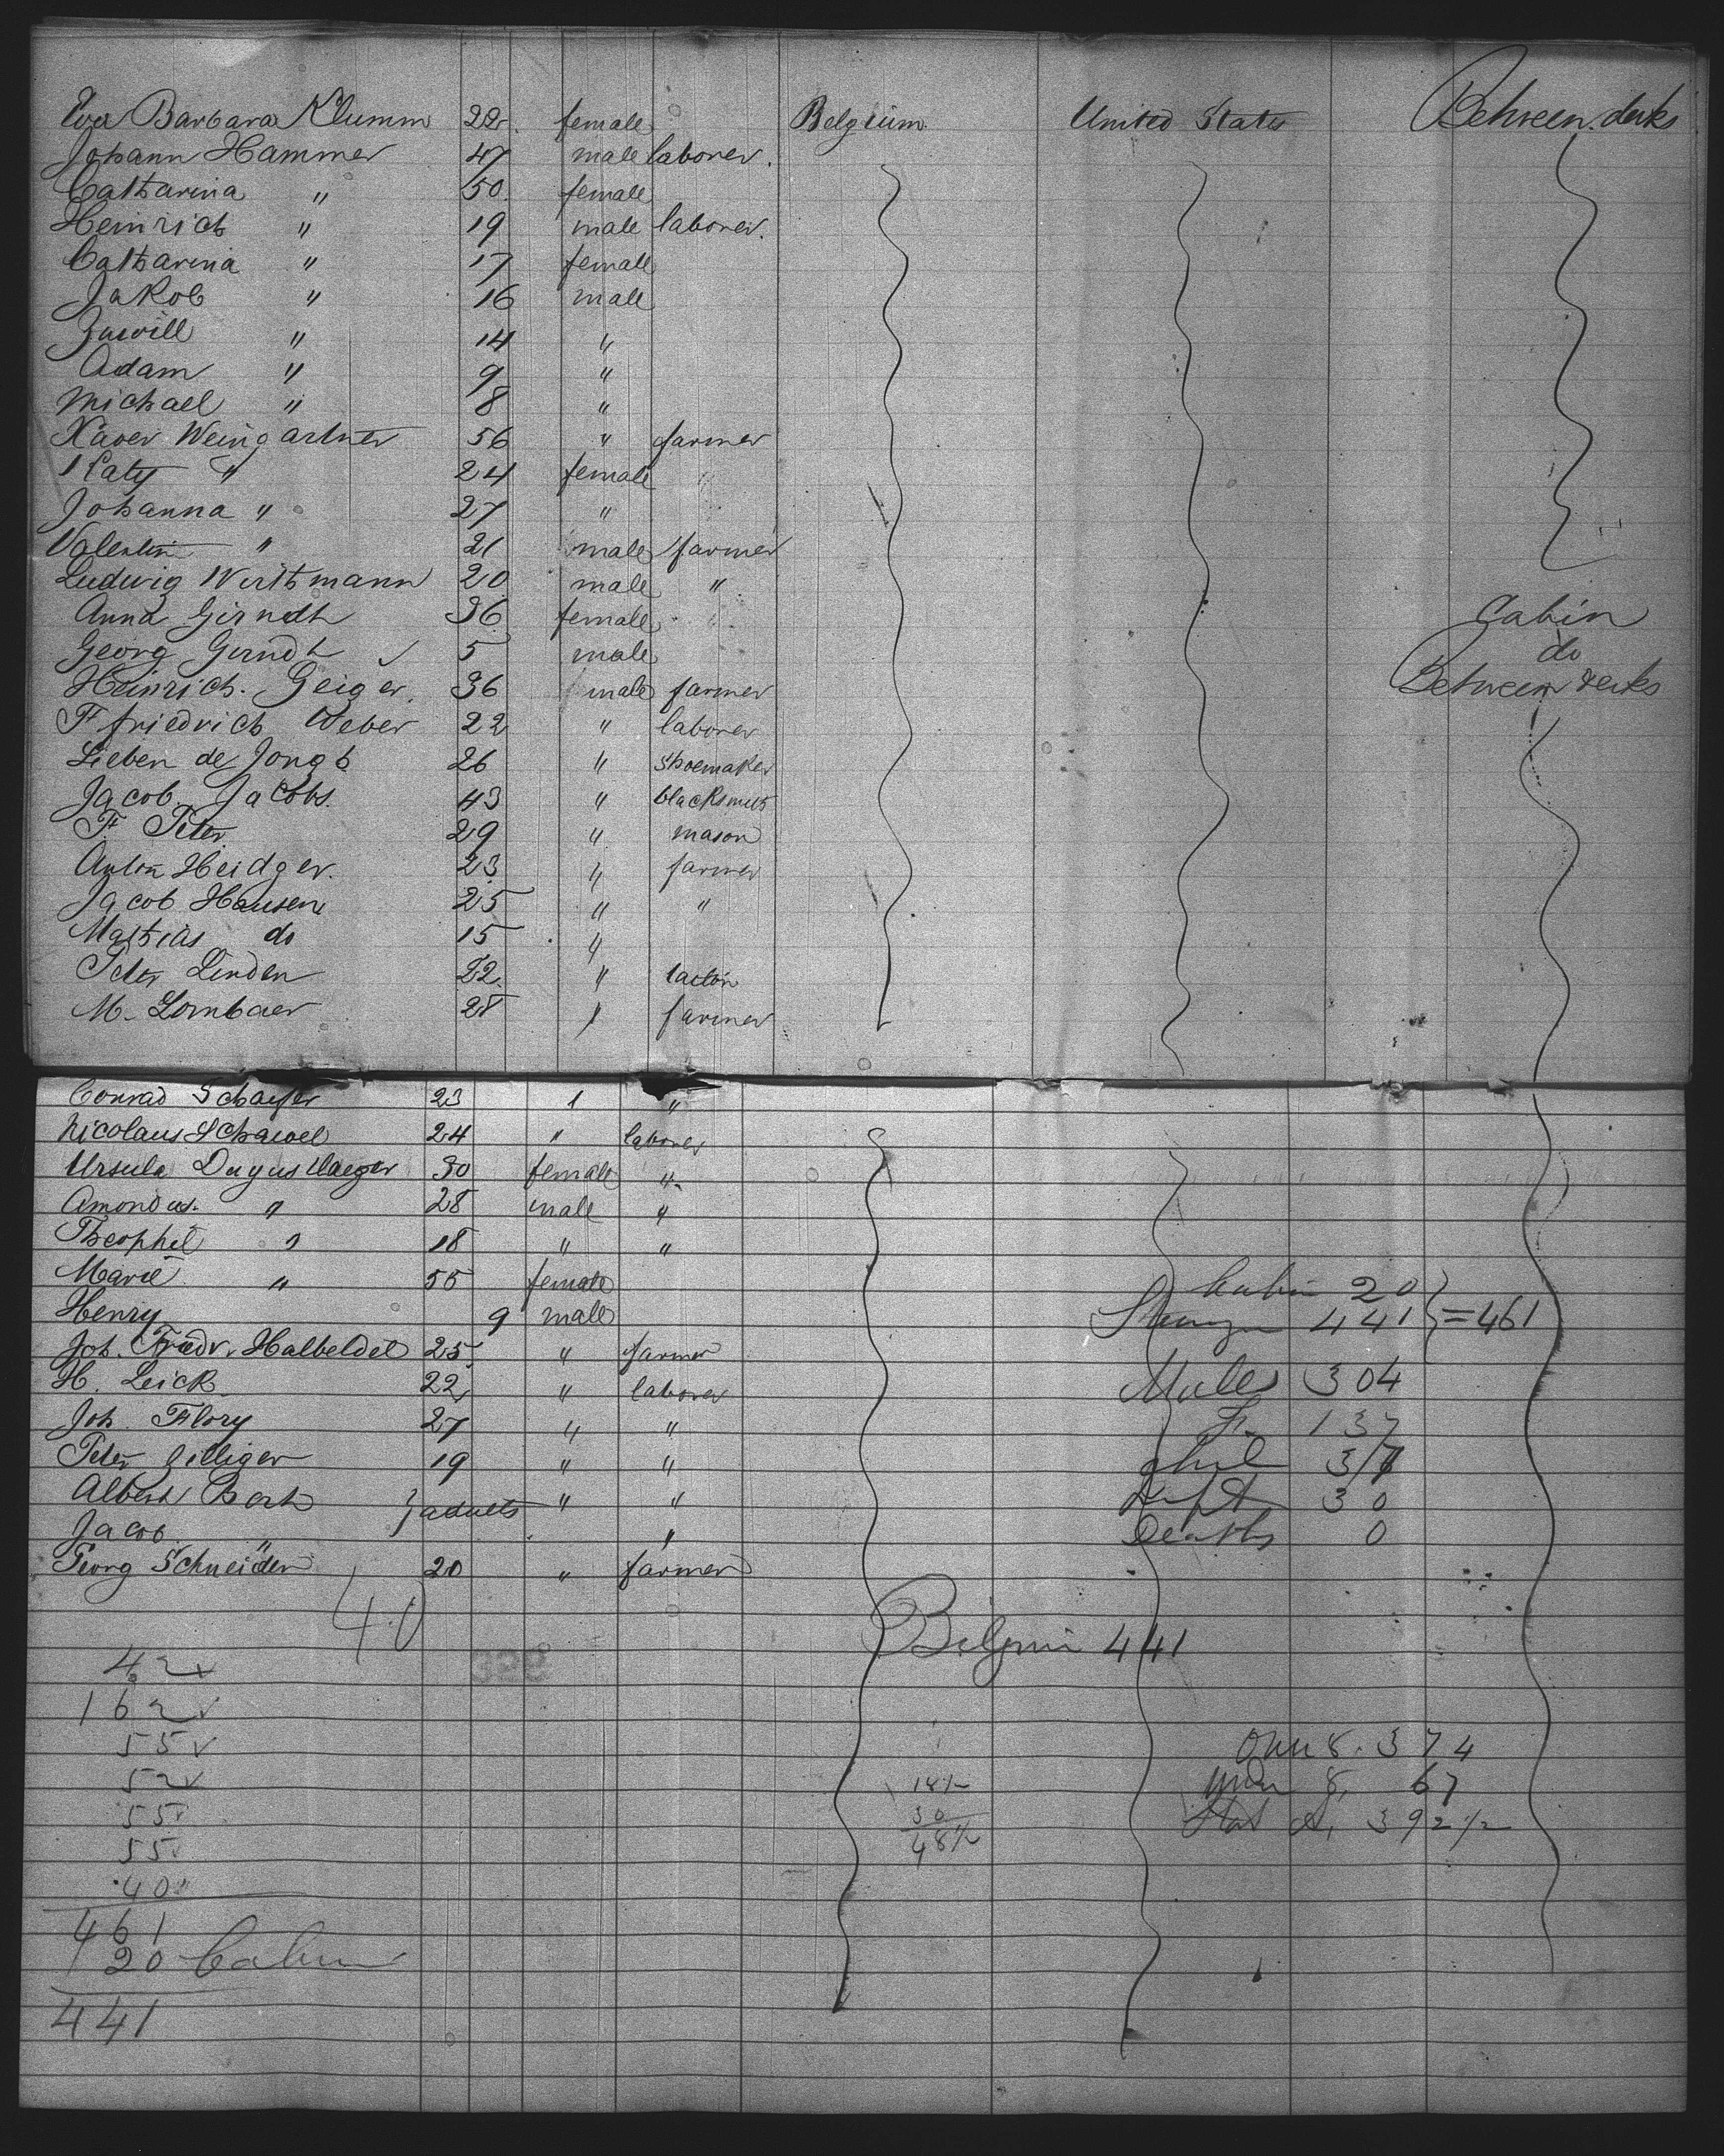 Eva Barbara Klumm 22 female Belgium United States Between decks
Johann Hammer 47 male laborer.
Catharina " 50. female
Heinrich " 19 male laborer.
Catharina " 17 female
Jakob " 16 male
" 14 "
Adam " 9 "
Michael " 8 "
Xaver Weingartner 56 " farmer
Katy " 24 female
Johanna " 27 "
Valentin " 21 male farmer
Ludwig Werthmann 20 male "
Anna Girndth 36 female Cabin
Georg Girndth ✓ 5 male do
Heinrich. Geiger 36 male farmer Between decks
Ffriedrich Weber 22 " laborer
Lieben de Jongh 26 " shoemaker
Jacob Jacobs. 43 " blacksmith
F. Peter 29 " mason
Anton Heidger. 23 " farmer
Jacob Hansen 25 " "
Mathias do 15 "
Peter Linden 22. "
M. Lombaer 28 " farmer
Conrad Schaefer 23 " "
Nicolaus Schawel 24 " laborer
Ursula 30 female "
Amondus. " 28 male "
Theophil " 18 " "
Marie " 55 female
Cabin 20
Henry 9 male
441 } = 461
Joh. Friedr. Halbeldel 25 " farmer
H. Leick 22 " laborer Males 304
Joh. Flory 27 " " F. 137
Peter Gilliger 19 " "
Albert Barth } adults " " 30
Jacob " " Deaths 0
Georg Schneider 20 " farmer
40
Belgium 441
42 ✓
162 ✓
55 ✓
52 ✓
55 ✓
55 ✓
40 "
461
20 Cabin
441
398
Over 8. 374
Under 8, 67
392 1/2
18 1/2
30
48 1/2